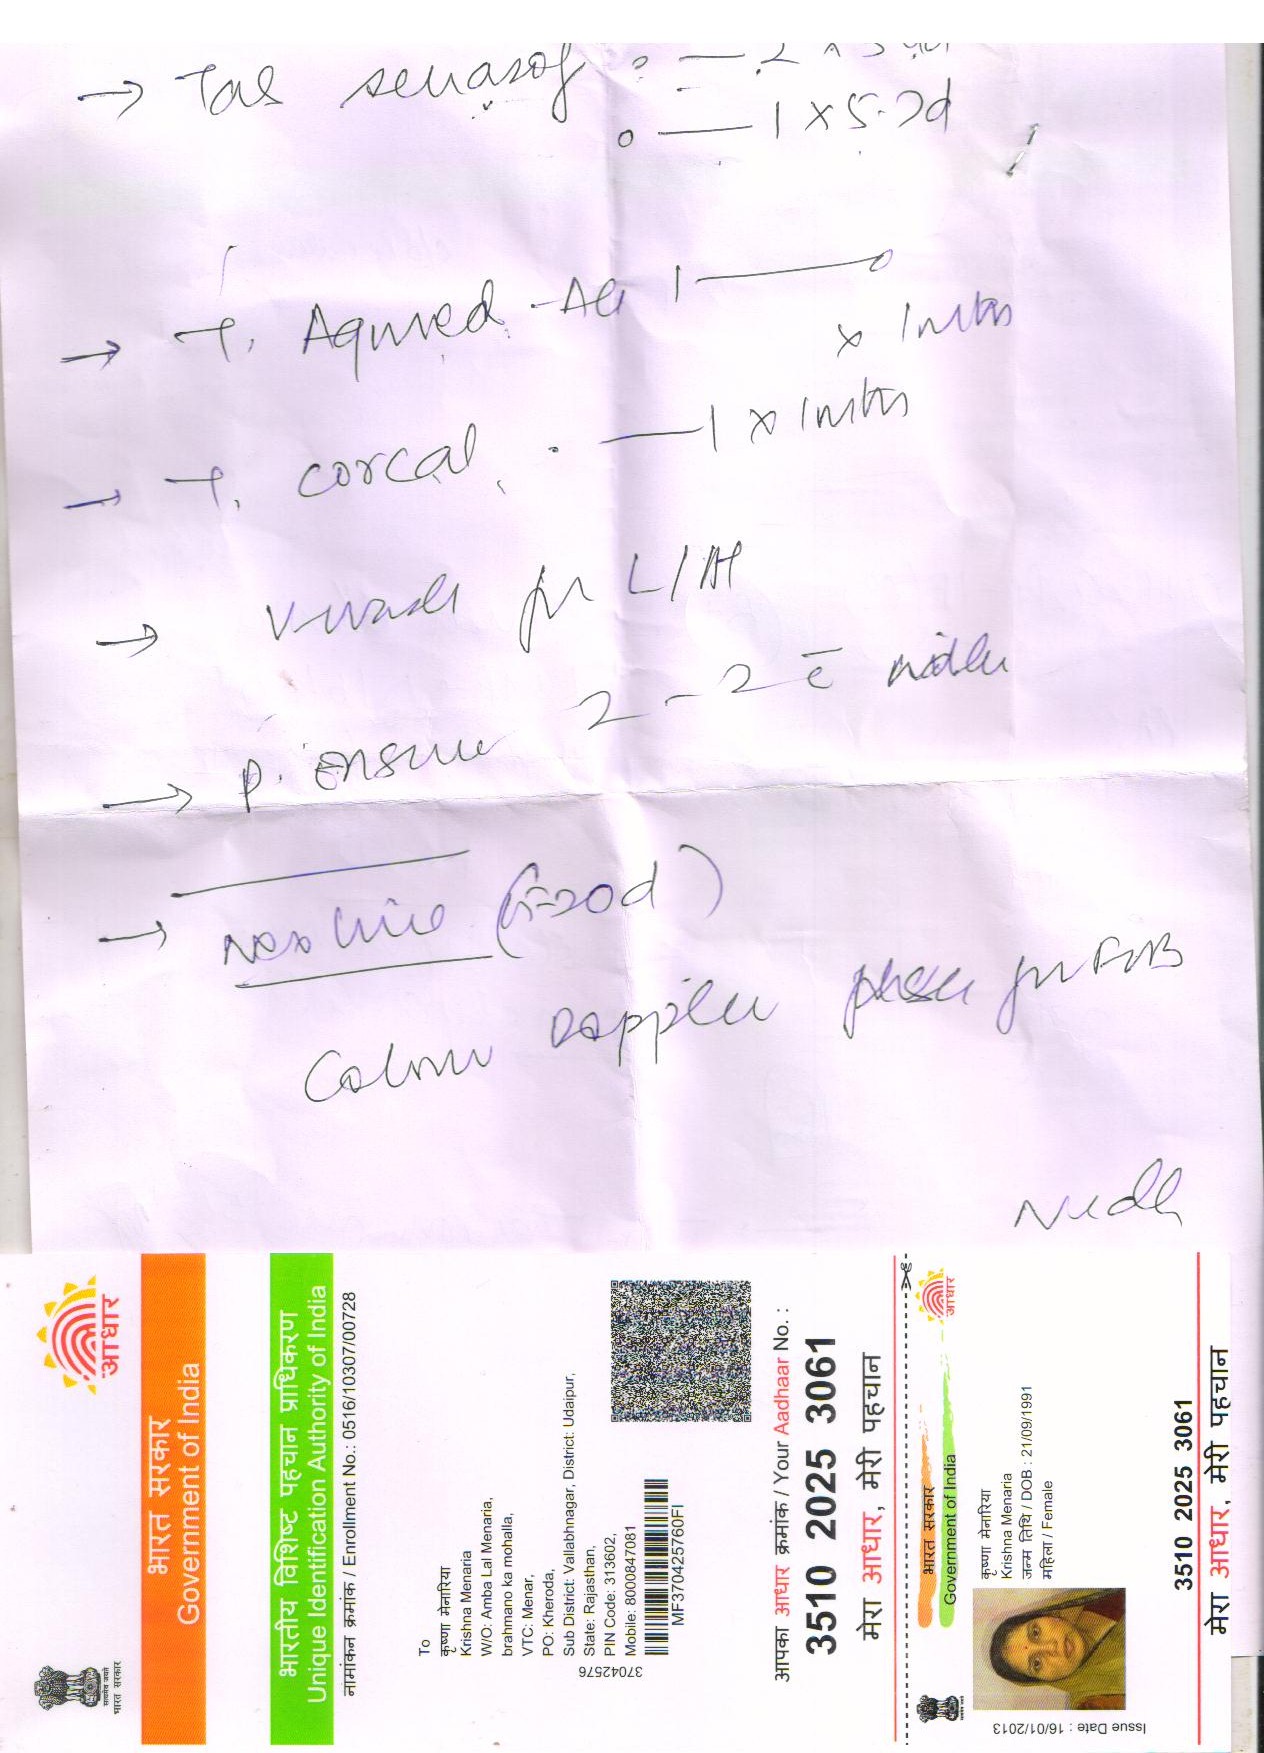 → Tab
— 1 x 5-7d
→ T. 1 — 0
x 1mth
→ T. corcal — 1 x 1mth
→ V-wash for L/A
→ P. Ensure 2 - 2 c̄ milk
→ (15-20d)
Colour Doppler please for FWB
आधार
भारत सरकार
भारत सरकार
Government of India
भारतीय विशिष्ट पहचान प्राधिकरण
Unique Identification Authority of India
नामांकन क्रमांक / Enrollment No.: 0516/10307/00728
To
कृष्णा मेनारिया
Krishna Menaria
W/O: Amba Lal Menaria,
brahmano ka mohalla,
VTC: Menar,
PO: Kheroda,
Sub District: Vallabhnagar, District: Udaipur,
State: Rajasthan,
PIN Code: 313602,
Mobile: 8000847081
37042576
MF370425760FI
आपका आधार क्रमांक / Your Aadhaar No. :
3510 2025 3061
मेरा आधार, मेरी पहचान
आधार
भारत सरकार
Government of India
कृष्णा मेनारिया
Krishna Menaria
जन्म तिथि / DOB : 21/09/1991
महिला / Female
Issue Date : 16/01/2013
3510 2025 3061
मेरा आधार, मेरी पहचान